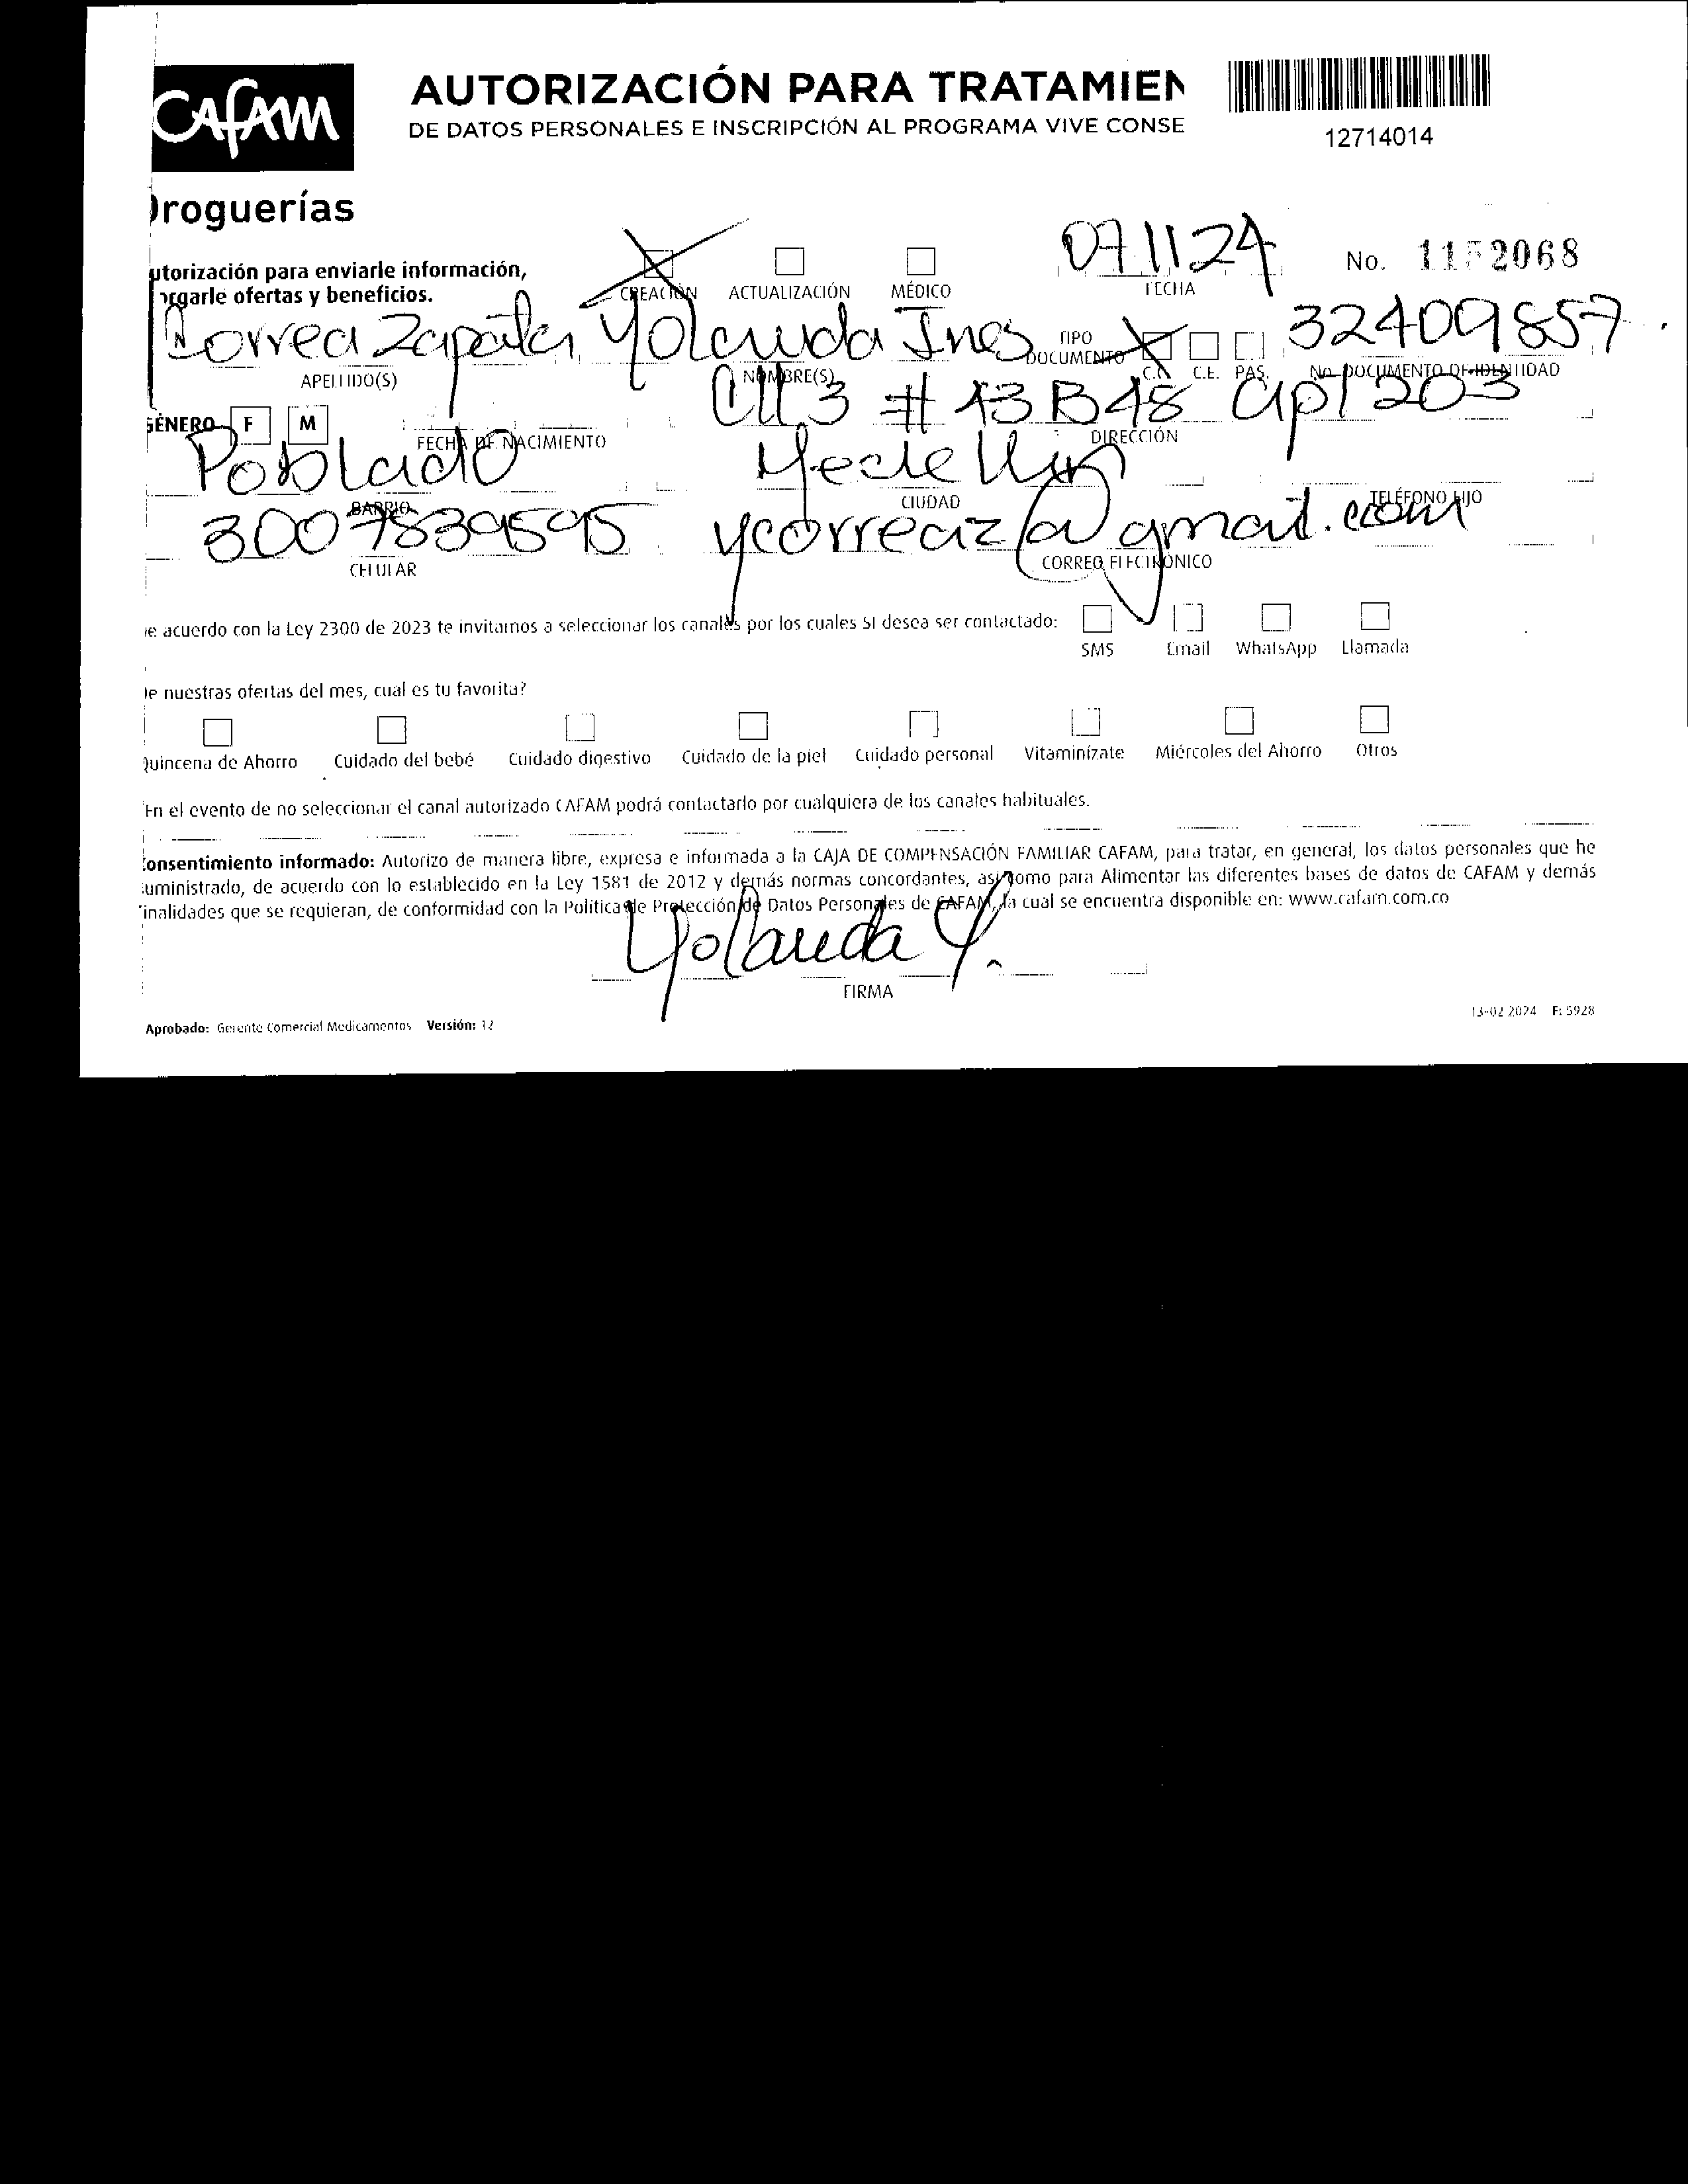 CAFAM
AUTORIZACIÓN PARA TRATAMIEN
DE DATOS PERSONALES E INSCRIPCIÓN AL PROGRAMA VIVE CONSE
12714014
Droguerías
utorización para enviarle información,
orgarle ofertas y beneficios.
CREACIÓN ACTUALIZACIÓN MÉDICO
071124
FECHA
No. 1152068
Correa Zapata Yolanda Ines
APELLIDO(S) NOMBRE(S)
TIPO DOCUMENTO C.C. C.E. PAS.
32409857
No. DOCUMENTO DE IDENTIDAD
GÉNERO F M
FECHA DE NACIMIENTO
Cll 3 # 43 B 48 apt 203
DIRECCIÓN
Poblado Medellin
BARRIO CIUDAD TELÉFONO FIJO
3007839595 ycorreaz@gmail.com
CELULAR CORREO ELECTRÓNICO
De acuerdo con la Ley 2300 de 2023 te invitamos a seleccionar los canales por los cuales SI desea ser contactado:
SMS Email WhatsApp Llamada
De nuestras ofertas del mes, cual es tu favorita?
Quincena de Ahorro Cuidado del bebé Cuidado digestivo Cuidado de la piel Cuidado personal Vitaminízate Miércoles del Ahorro Otros
*En el evento de no seleccionar el canal autorizado CAFAM podrá contactarlo por cualquiera de los canales habituales.
Consentimiento informado: Autorizo de manera libre, expresa e informada a la CAJA DE COMPENSACIÓN FAMILIAR CAFAM, para tratar, en general, los datos personales que he
suministrado, de acuerdo con lo establecido en la Ley 1581 de 2012 y demás normas concordantes, así como para Alimentar las diferentes bases de datos de CAFAM y demás
finalidades que se requieran, de conformidad con la Política de Protección de Datos Personales de CAFAM, la cual se encuentra disponible en: www.cafam.com.co
Yolanda C.
FIRMA
Aprobado: Gerente Comercial Medicamentos Versión: 12
13-02 2024 F: 5928